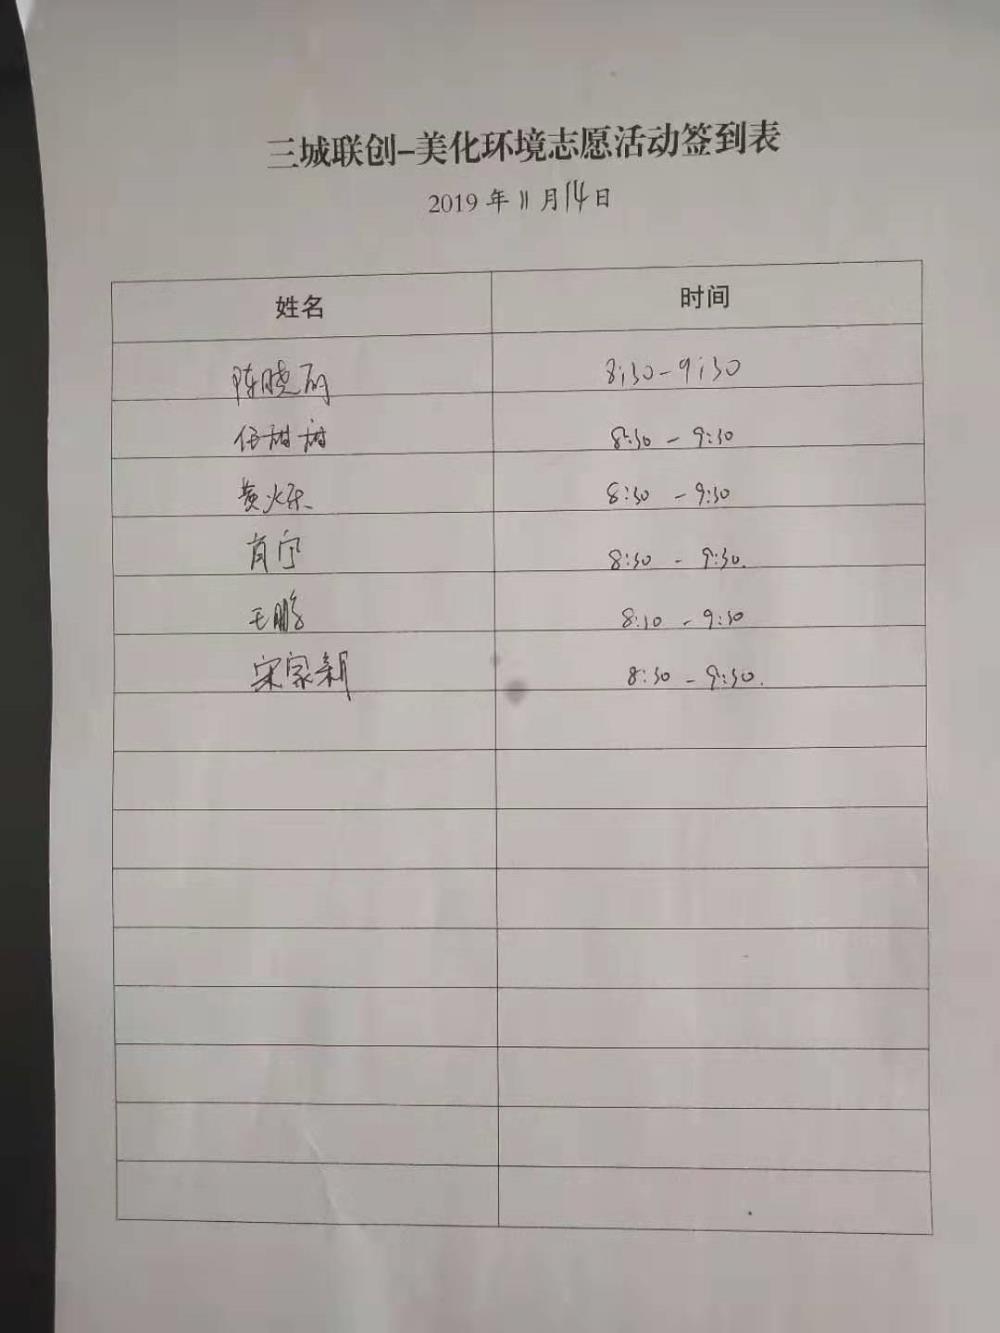 三城联创-美化环境志愿活动签到表
2019 年 11 月 14 日
姓名 时间
陈晓丽 8:30-9:30
任甜甜 8:30-9:30
黄火乐 8:30-9:30
肖宁 8:30-9:30.
王鹏 8:30-9:30
宋家新 8:30-9:30.